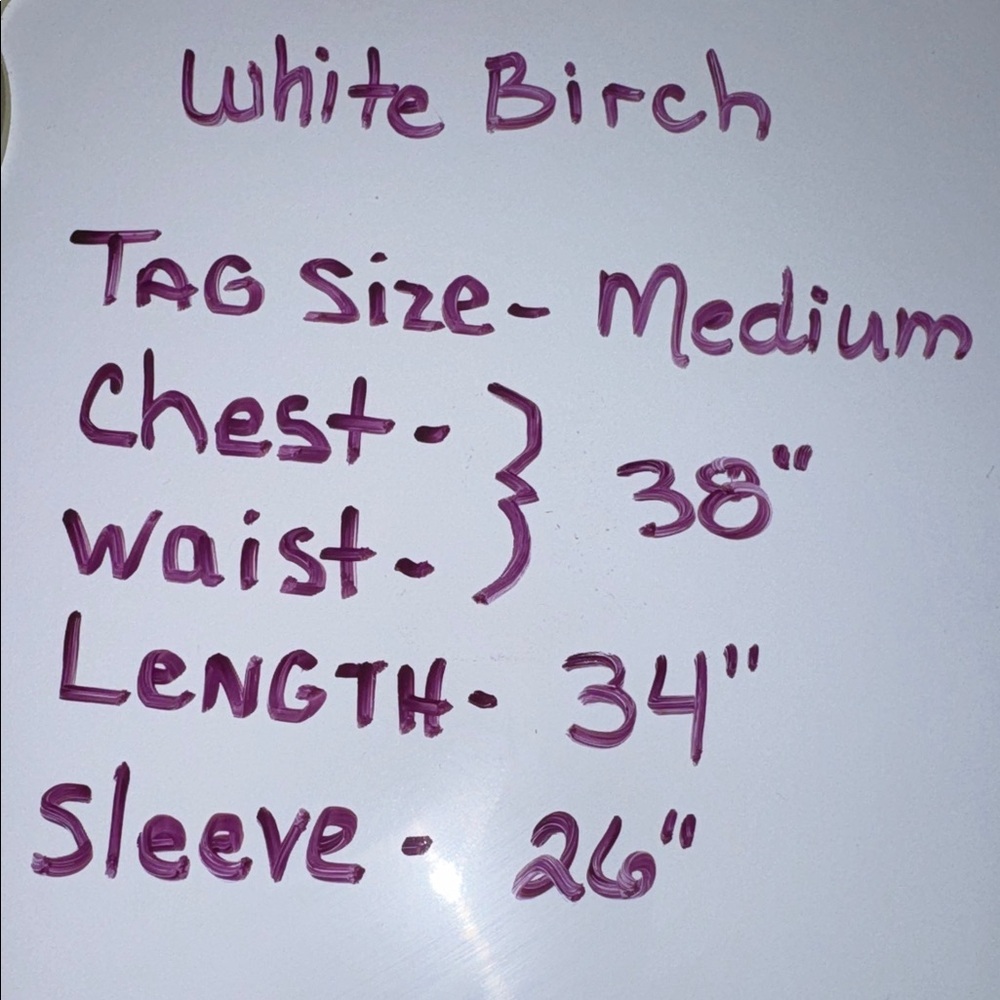 White Birch
TAG Size- Medium
Chest- } 38"
Waist-
LeNGTH- 34"
Sleeve - 26"